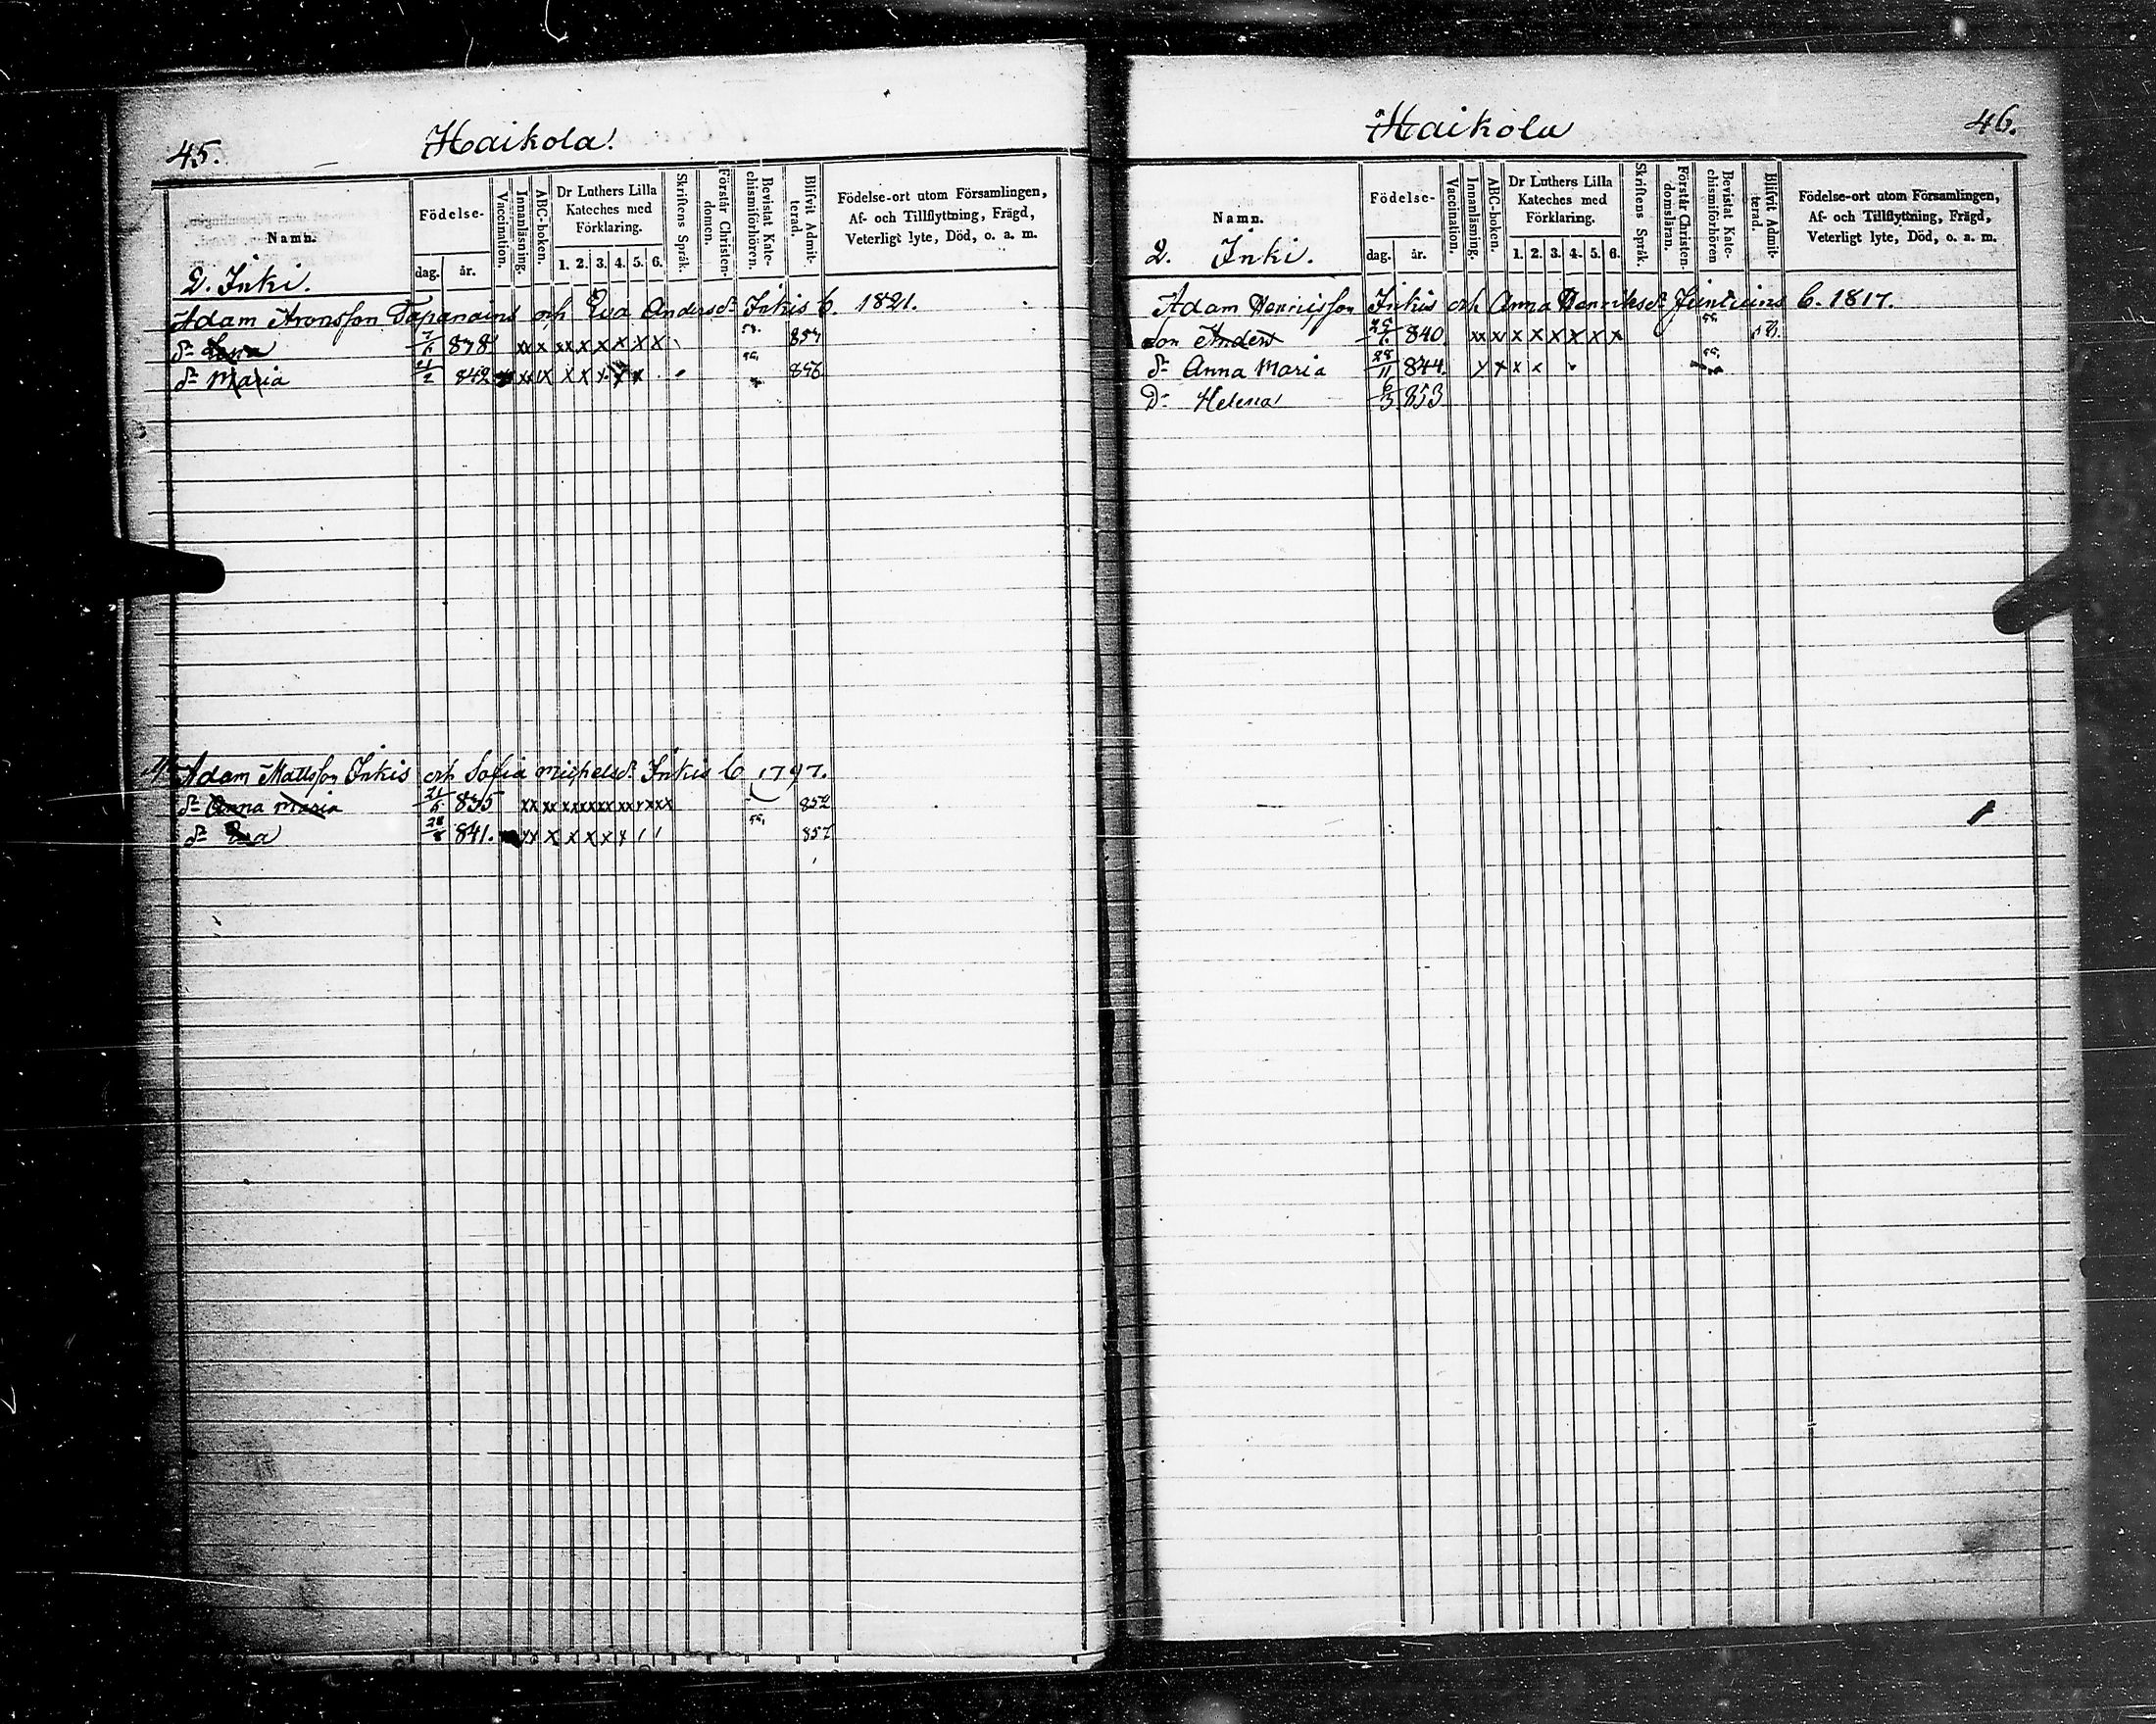 45.
Haikola.
Namn.
Födelse-
dag. år.
Vaccination.
Innanläsning.
ABC-boken.
Dr Luthers Lilla Kateches med Förklaring.
1. 2. 3. 4. 5. 6.
Skriftens Språk.
Förstår Christendomen.
Bevistat Katechismiförhören.
Blifvit Admitterad.
Födelse-ort utom Församlingen, Af- och Tillflyttning, Frägd, Veterligt lyte, Död, o. a. m.
2. Inki.
Adam Aronsson Tapanains och Eva Andersdr Inkis C. 1821.
dr Lena 7/6 838 xx x xx x x x x x 857
dr Maria 21/2 842 xx x x x x x x 56. 856
Adam Mattsson Inkis och Sofia Michelsdr Inkis C 1797.
dr Anna Maria 21/5 835 xx xx xx xx xx xx xxx 852
dr Eva 28/8 841. xx x x x x x 56. 857
46.
Haikola
Namn.
Födelse-
dag. år.
Vaccination.
Innanläsning.
ABC-boken.
Dr Luthers Lilla Kateches med Förklaring.
1. 2. 3. 4. 5. 6.
Skriftens Språk.
Förstår Christendomsläran.
Bevistat Katechismiförhören
Blifvit Admitterad.
Födelse-ort utom Församlingen, Af- och Tillflyttning, Frägd, Veterligt lyte, Död, o. a. m.
2. Inki.
Adam Henricsson Inkis och Anna Henriksdr C. 1817.
son Anders 840. xx xx x x x x x x
dr Anna Maria 28/11 844. x x x x
Dr Helena 6/3 853